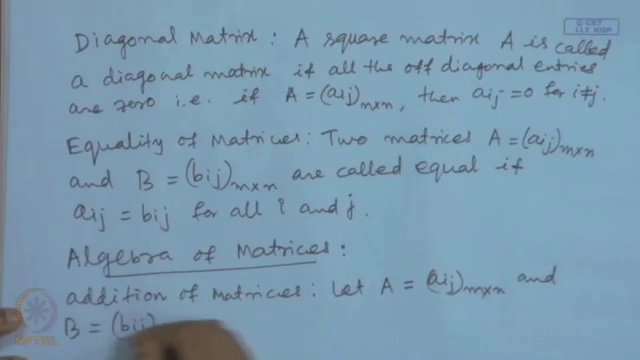 © CET
I.I.T. KGP
Diagonal Matrix : A square matrix A is called
a diagonal matrix if all the off diagonal entries
are zero i.e. if A = (aij)m×n, then aij = 0 for i≠j.
Equality of Matrices: Two matrices A = (aij)m×n
and B = (bij)m×n are called equal if
aij = bij for all i and j.
Algebra of Matrices:
addition of Matrices: Let A = (aij)m×n and
B = (bij)
NPTEL